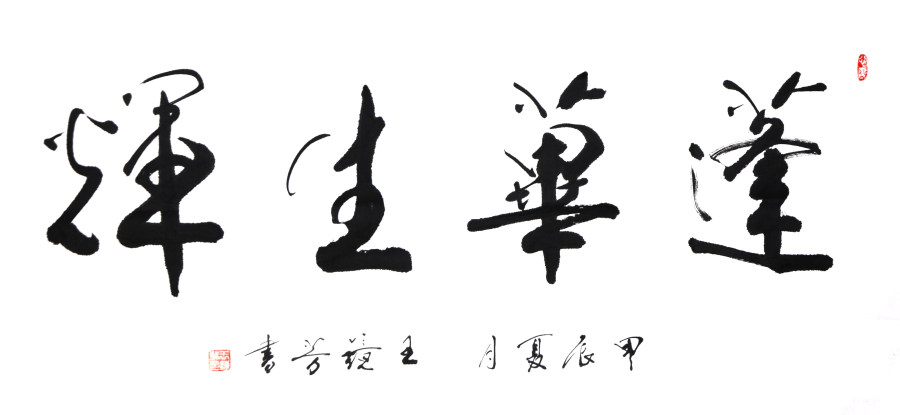 蓬蓽生輝
甲辰夏月 王鏡芳書